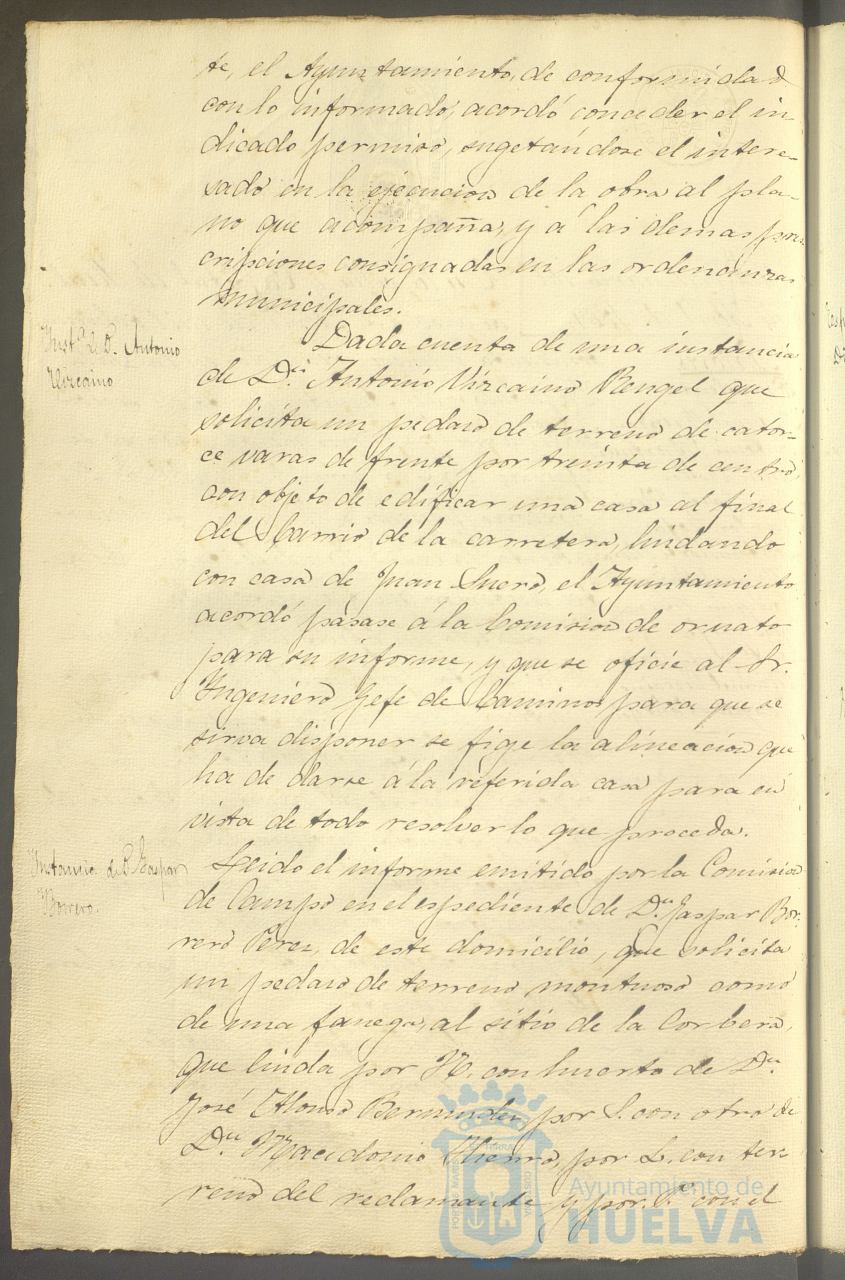 te, el Ayuntamiento, de conformidad
con lo informado, acordó conceder el in-
dicado permiso, sugetándose el intere-
sado en la ejecucion de la obra al pla-
no que acompaña, y á las demas pres-
cripciones consignadas en las ordenanzas
municipales.
Inst.ª de D. Antonio
Vizcaino
Dada cuenta de una instancia
de D.n Antonio Vizcaino Rengel que
solicita un pedazo de terreno de cator-
ce varas de frente por treinta de centro,
con objeto de edificar una casa al final
del barrio de la carretera, lindando
con casa de Juan Suero, el Ayuntamiento
acordó pasase á la Comision de ornato
para su informe, y que se oficie al Sr.
Ingeniero Gefe de Caminos para que se
sirva disponer se fige la alineacion que
ha de darse á la referida casa para en
vista de todo resolver lo que proceda.
Instancia de D. Gaspar
Borrero.
Leido el informe emitido por la Comision
de Campo en el espediente de D.n Gaspar Bor-
rero Perez, de este domicilio, que solicita
un pedazo de terreno montuoso como
de una fanega, al sitio de la Corbera,
que linda por N. con huerto de D.n
José Alonso Bermudez, por S. con otro de
D.n Macedonio por L. con ter-
reno del reclamante y por P.te con el
Ayuntamiento de
HUELVA